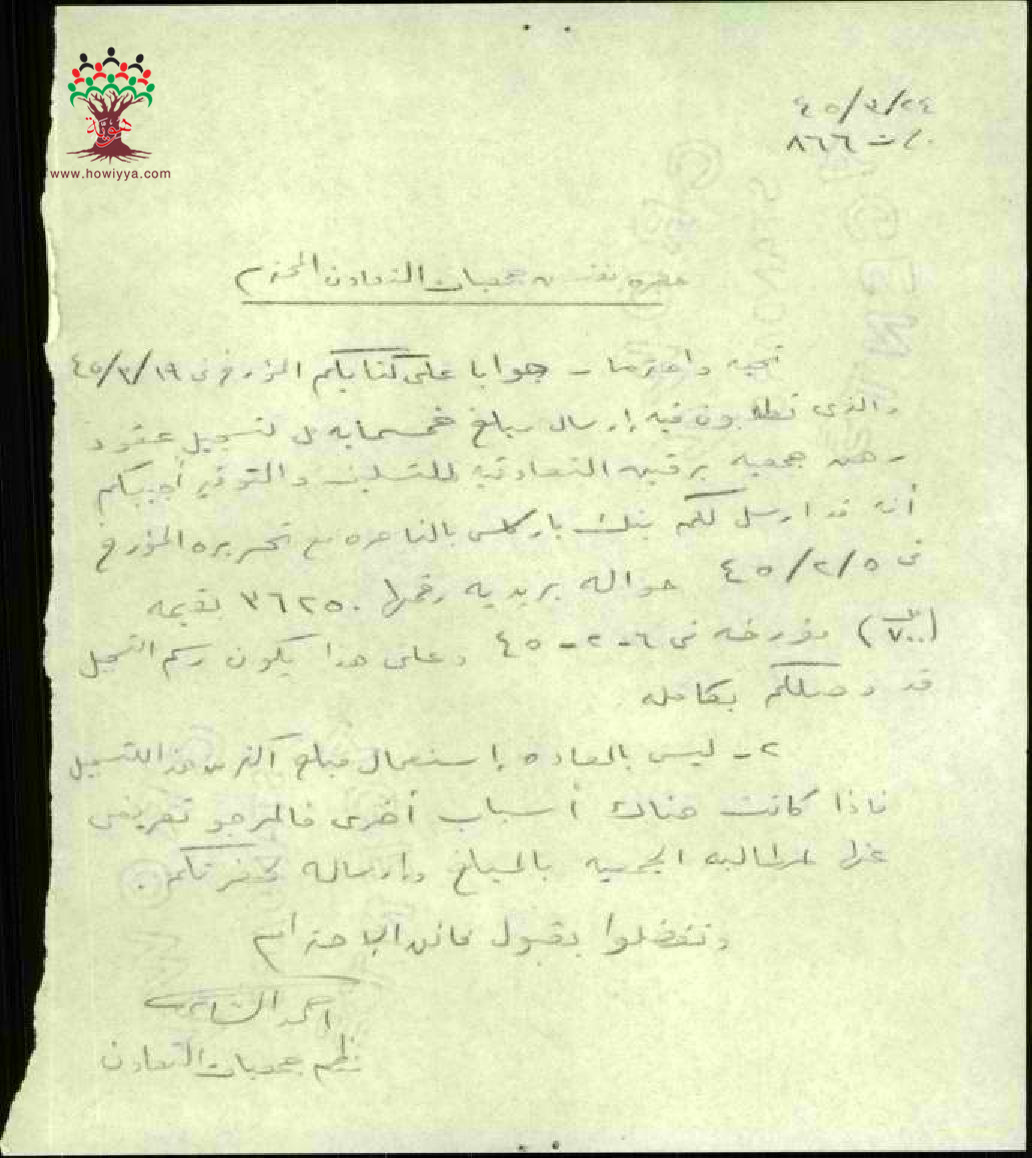 هوية
www.howiyya.com
٤٥/٣/٢٤
ت/٨٦٦
حضرة مفتش جمعيات التعاون المحترم
تحية واحتراما - جوابا على كتابكم المؤرخ في ٤٥/٣/١٩
والذي تطلبون فيه إرسال مبلغ خمسمايه مل لتسجيل عقود
رهن جمعية برقين التعاونية للتسليف والتوفير أجيبكم
أنه قد ارسل لكم بنك باركلس بالناصره مع تحريره المؤرخ
في ٤٥/٢/٥ حواله بريديه رقمها ٣٦٢٥٠ بقيمه
(٧٠٠ مل) مؤرخه في ٦-٢-٤٥ وعلى هذا يكون رسم التسجيل
قد وصلكم بكامله
٢- ليس بالعاده إستعمال مبلغ أكثر من هذا للتسجيل
فاذا كانت هناك أسباب أخرى فالمرجو تعريفي
عنها لمطالبه الجمعيه بالمبلغ وارساله لحضرتكم.
وتفضلوا بقبول فائق الاحترام
احمد
منظم جمعيات التعاون